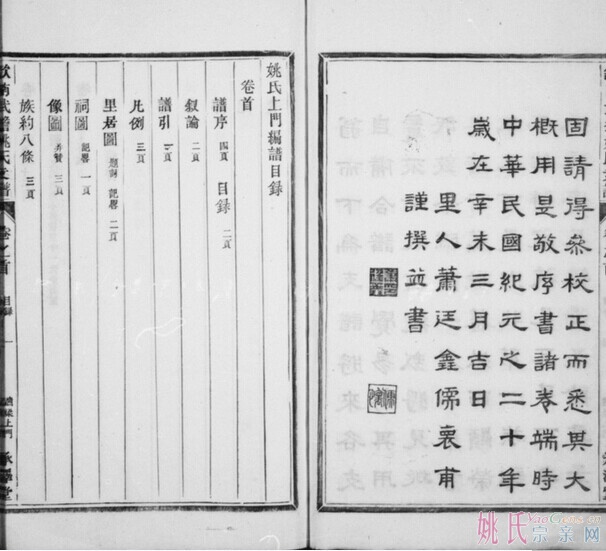 固請得參校正而悉其大
概用是敬序書諸卷端時
中華民國紀元之二十年
歲在辛未三月吉日
里人蕭廷鑫儒懷甫
謹撰並書
姚氏上門編譜目錄
卷首
譜序 四頁 目錄 二頁
叙論 二頁
譜引 一頁
凡例 三頁
里居圖 題詞 記畧 二頁
祠圖 記畧 一頁
像圖 弁贊 三頁
族約八條 三頁
姚氏宗亲网